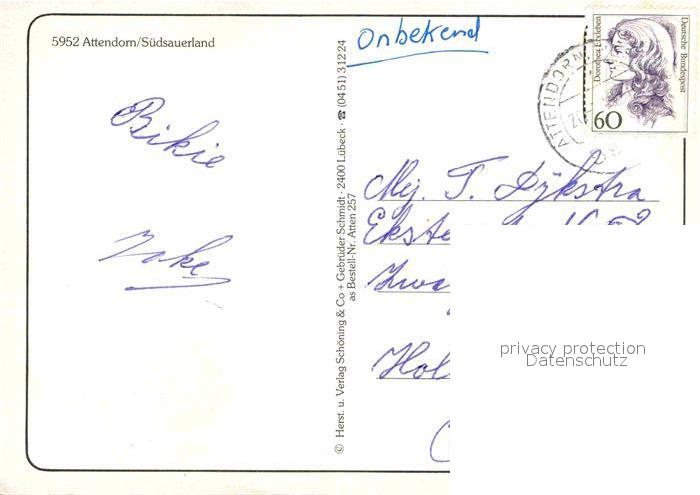 5952 Attendorn/Südsauerland
Onbekend
Dorothea Erxleben
Deutsche Bundespost
60
ATTENDORN
Bikie
Joke
© Herst. u. Verlag Schöning & Co + Gebrüder Schmidt · 2400 Lübeck · ☎ (0451) 31224
as Bestell-Nr. Atten 257
Mej. T. Dijkstra
Ekste
Zwa
Hol
privacy protection
Datenschutz